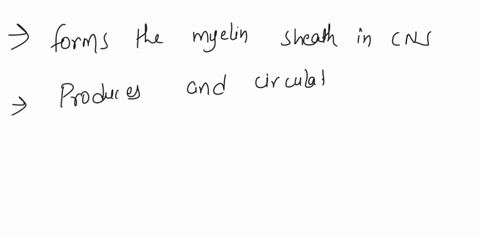 → forms the myelin sheath in CNS
→ Produces and circulat